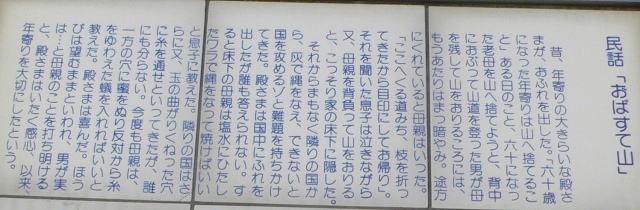 民話「おばすて山」
昔、年寄りの大きらいな殿さ
まが、おふれを出した。「六十歳
になった年寄りは山へ捨てるこ
と」ある日のこと、六十になっ
た老母を山へ捨てようと、背中
におぶって山道を登った男が母
を残して山をおりるころには、
もうあたりはまっ暗やみ。途方
にくれていると母親はいった。
「ここへくる道みち、枝を折っ
てきたから目印にしてお帰り」。
それを聞いた息子は泣きながら
又、母親を背負って山をおりる
と、こっそり家の床下に隠した。
それからまもなく隣りの国か
ら、灰で縄をなえ、できないと
国を攻めるゾと難題を持ちかけ
てきた。殿さまは国中にふれを
出したが誰も答えられない。す
ると床下の母親は塩水にひたし
たワラで縄をなって焼けばいい
と息子に教えた。隣りの国はさ
らに又、玉の曲がりくねった穴
に糸を通せといってきたが、誰
にも分らない。今度も母親は、
一方の穴に蜜をぬり反対から糸
をゆわえた蟻を入れればいいと
教えた。殿さまは喜んだ。ほう
びは望むままといわれ、男が実
は…と母親のことを打ち明ける
と、殿さまはいたく感心、以来、
年寄りを大切にしたという。